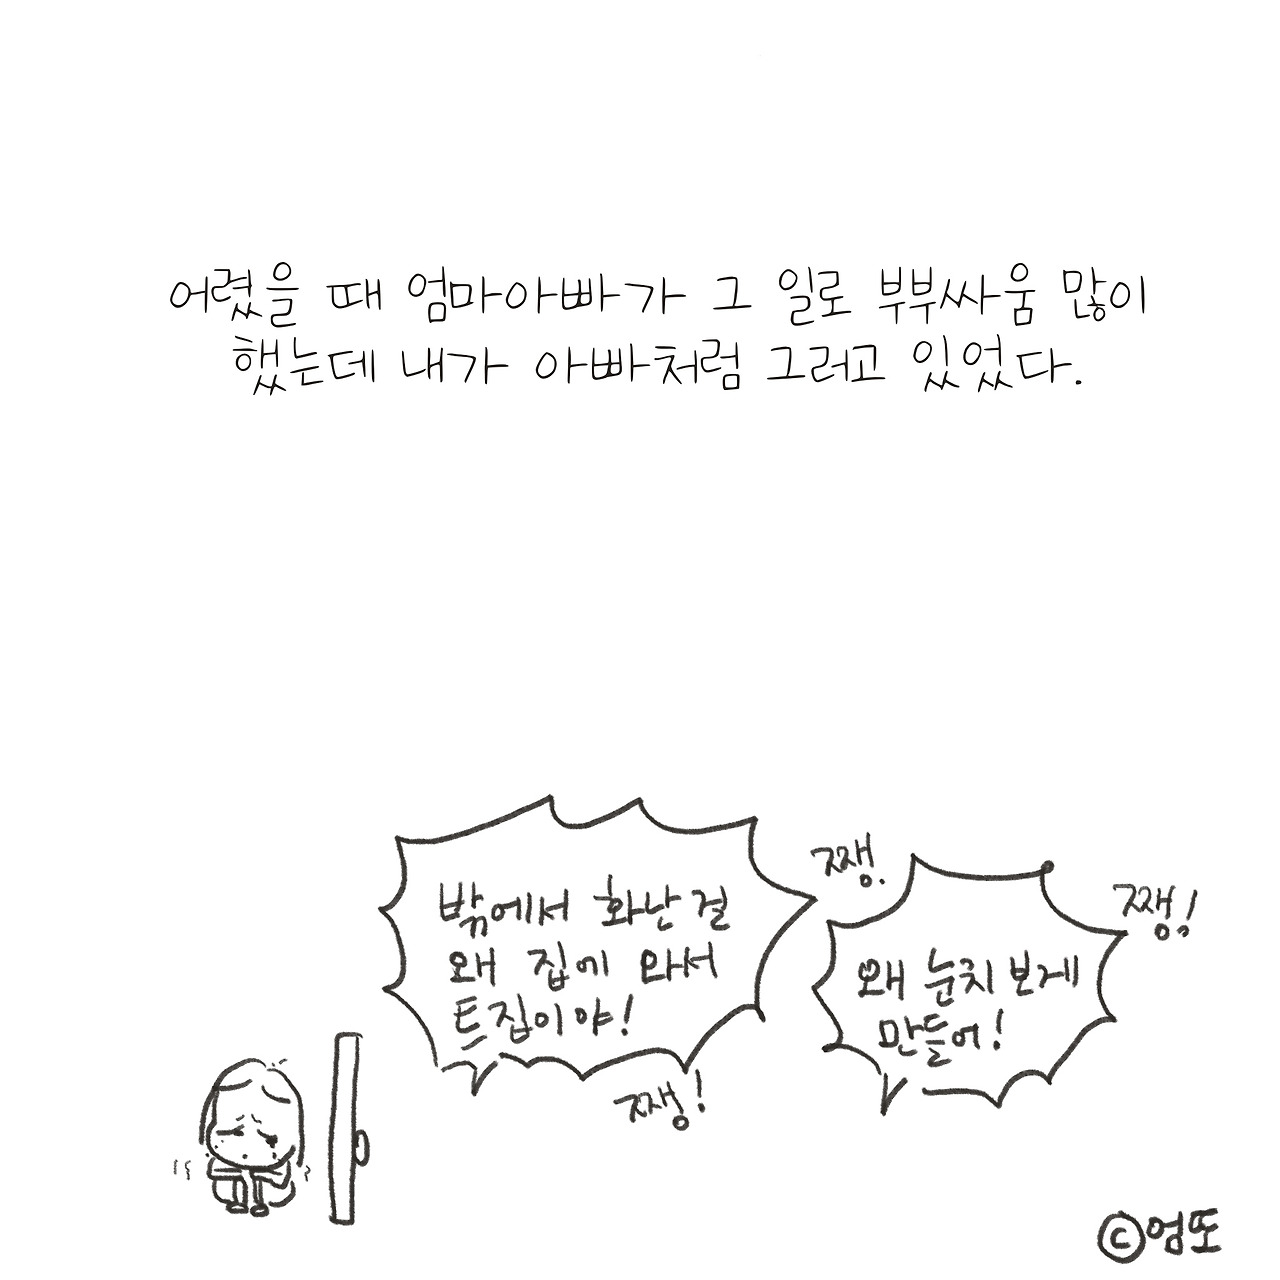 어렸을 때 엄마아빠가 그 일로 부부싸움 많이
했는데 내가 아빠처럼 그러고 있었다.
밖에서 화난 걸
왜 집에 와서
트집이야!
쨍.
왜 눈치 보게
만들어!
쨍!
쨍!
©엄또